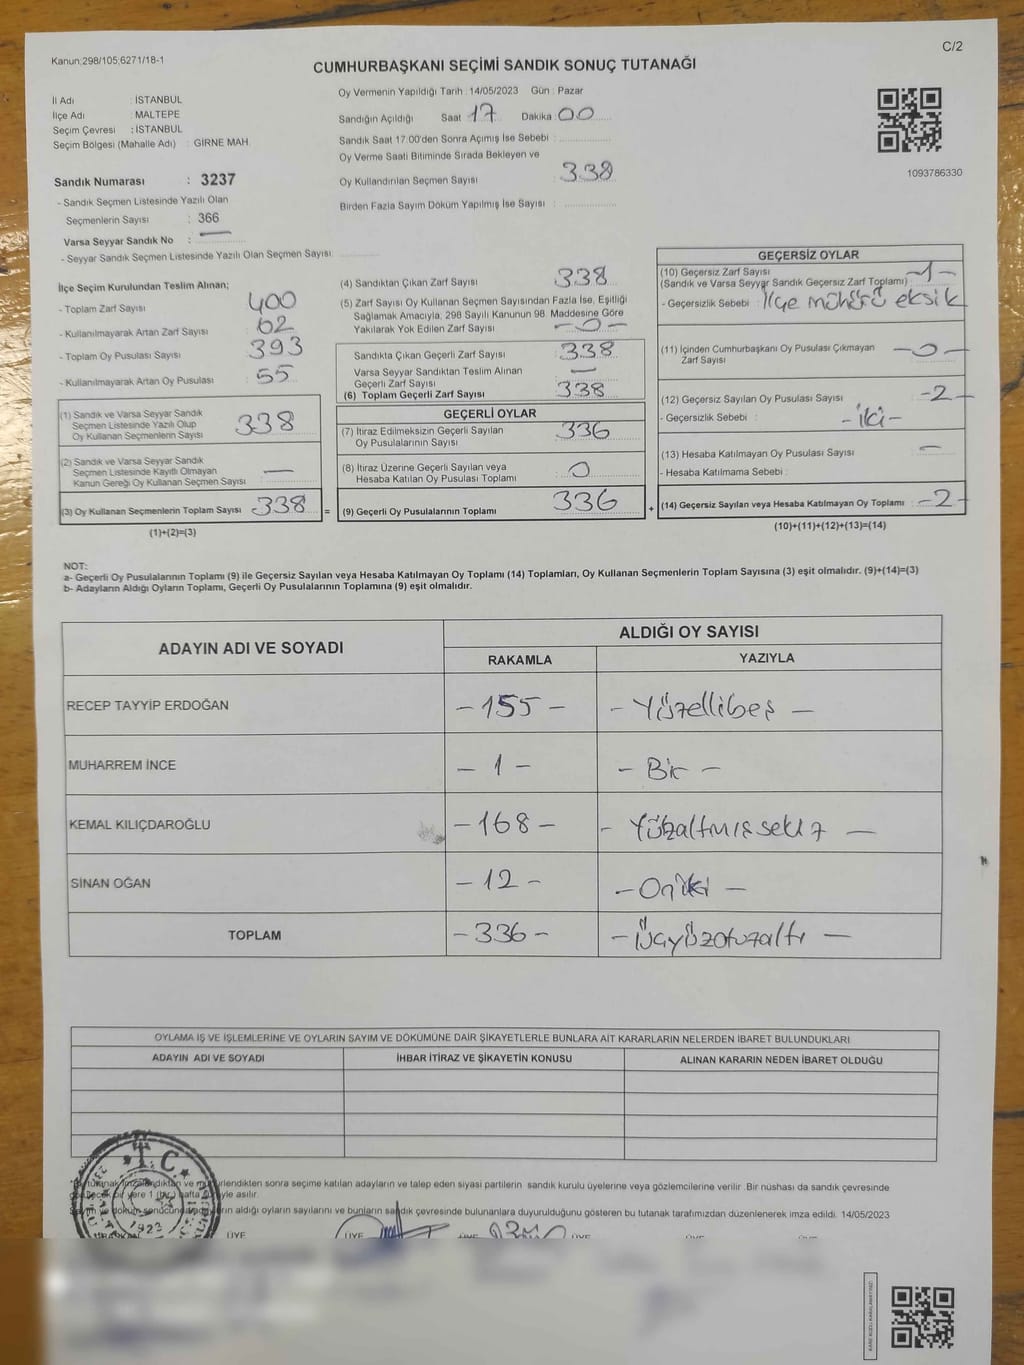 C/2
Kanun:298/105;6271/18-1
CUMHURBAŞKANI SEÇİMİ SANDIK SONUÇ TUTANAĞI
İl Adı : İSTANBUL
İlçe Adı : MALTEPE
Seçim Çevresi : İSTANBUL
Seçim Bölgesi (Mahalle Adı) : GİRNE MAH.
Sandık Numarası : 3237
- Sandık Seçmen Listesinde Yazılı Olan
Seçmenlerin Sayısı : 366
Varsa Seyyar Sandık No : —
- Seyyar Sandık Seçmen Listesinde Yazılı Olan Seçmen Sayısı:
Oy Vermenin Yapıldığı Tarih : 14/05/2023 Gün : Pazar
Sandığın Açıldığı Saat 17 Dakika 00
Sandık Saat 17.00'den Sonra Açılmış İse Sebebi :
Oy Verme Saati Bitiminde Sırada Bekleyen ve
Oy Kullandırılan Seçmen Sayısı : 338
Birden Fazla Sayım Döküm Yapılmış İse Sayısı :
1093786330
İlçe Seçim Kurulundan Teslim Alınan;
- Toplam Zarf Sayısı : 400
- Kullanılmayarak Artan Zarf Sayısı : 62
- Toplam Oy Pusulası Sayısı : 393
- Kullanılmayarak Artan Oy Pusulası : 55
(1) Sandık ve Varsa Seyyar Sandık
Seçmen Listesinde Yazılı Olup
Oy Kullanan Seçmenlerin Sayısı 338
(2) Sandık ve Varsa Seyyar Sandık
Seçmen Listesinde Kayıtlı Olmayan
Kanun Gereği Oy Kullanan Seçmen Sayısı —
(3) Oy Kullanan Seçmenlerin Toplam Sayısı 338 =
(1)+(2)=(3)
(4) Sandıktan Çıkan Zarf Sayısı : 338
(5) Zarf Sayısı Oy Kullanan Seçmen Sayısından Fazla İse, Eşitliği
Sağlamak Amacıyla, 298 Sayılı Kanunun 98. Maddesine Göre
Yakılarak Yok Edilen Zarf Sayısı : —0—
Sandıkta Çıkan Geçerli Zarf Sayısı : 338
Varsa Seyyar Sandıktan Teslim Alınan
Geçerli Zarf Sayısı : —
(6) Toplam Geçerli Zarf Sayısı : 338
GEÇERLİ OYLAR
(7) İtiraz Edilmeksizin Geçerli Sayılan
Oy Pusulalarının Sayısı : 336
(8) İtiraz Üzerine Geçerli Sayılan veya
Hesaba Katılan Oy Pusulası Toplamı : 0
(9) Geçerli Oy Pusulalarının Toplamı : 336 +
GEÇERSİZ OYLAR
(10) Geçersiz Zarf Sayısı
(Sandık ve Varsa Seyyar Sandık Geçersiz Zarf Toplamı) : —1—
- Geçersizlik Sebebi : İlçe mühürü eksik
(11) İçinden Cumhurbaşkanı Oy Pusulası Çıkmayan
Zarf Sayısı : —0—
(12) Geçersiz Sayılan Oy Pusulası Sayısı : -2-
- Geçersizlik Sebebi : -iki-
(13) Hesaba Katılmayan Oy Pusulası Sayısı : —
- Hesaba Katılmama Sebebi :
(14) Geçersiz Sayılan veya Hesaba Katılmayan Oy Toplamı : -2-
(10)+(11)+(12)+(13)=(14)
NOT:
a- Geçerli Oy Pusulalarının Toplamı (9) ile Geçersiz Sayılan veya Hesaba Katılmayan Oy Toplamı (14) Toplamları, Oy Kullanan Seçmenlerin Toplam Sayısına (3) eşit olmalıdır. (9)+(14)=(3)
b- Adayların Aldığı Oyların Toplamı, Geçerli Oy Pusulalarının Toplamına (9) eşit olmalıdır.
ADAYIN ADI VE SOYADI ALDIĞI OY SAYISI
RAKAMLA YAZIYLA
RECEP TAYYİP ERDOĞAN -155- -Yüzellibeş-
MUHARREM İNCE -1- -Bir-
KEMAL KILIÇDAROĞLU -168- -Yüzaltmışsekiz-
SİNAN OĞAN -12- -Oniki-
TOPLAM -336- -Üçyüzotuzaltı-
OYLAMA İŞ VE İŞLEMLERİNE VE OYLARIN SAYIM VE DÖKÜMÜNE DAİR ŞİKAYETLERLE BUNLARA AİT KARARLARIN NELERDEN İBARET BULUNDUKLARI
ADAYIN ADI VE SOYADI İHBAR İTİRAZ VE ŞİKAYETİN KONUSU ALINAN KARARIN NEDEN İBARET OLDUĞU
T.C.
1923
tutanak imzalandıktan ve mühürlendikten sonra seçime katılan adayların ve talep eden siyasi partilerin sandık kurulu üyelerine veya gözlemcilerine verilir. Bir nüshası da sandık çevresinde
bir yere 1 (bir) hafta süreyle asılır.
Sayım ve döküm sonucunda adayların aldığı oyların sayılarını ve bunların sandık çevresinde bulunanlara duyurulduğunu gösteren bu tutanak tarafımızdan düzenlenerek imza edildi. 14/05/2023
ÜYE ÜYE ÜYE ÜYE ÜYE ÜYE